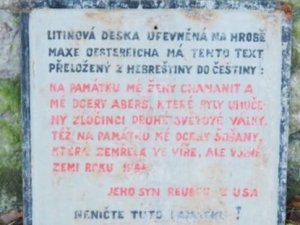 LITINOVÁ DESKA UPEVNĚNÁ NA HROBĚ
MAXE OESTERREICHA MÁ TENTO TEXT
PŘELOŽENÝ Z HEBREŠTINY DO ČEŠTINY:
NA PAMÁTKU MÉ ŽENY CHAMANIT A
MÉ DCERY ABERS, KTERÉ BYLY UMUČENY
ZLOČINCI DRUHÉ SVĚTOVÉ VÁLKY.
TÉŽ NA PAMÁTKU MÉ DCERY ŠOŠANY,
KTERÁ ZEMŘELA VE VÍŘE, ALE V JINÉ
ZEMI ROKU
JEHO SYN REUBEN Z USA
NENIČTE TUTO PAMÁTKU!